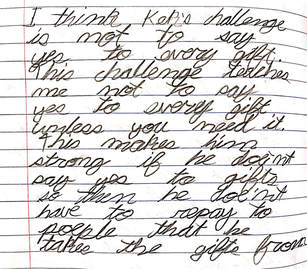 I think Keb's challenge
is not to say
yes to every gift.
This challenge teaches
me not to say
yes to every gift
unless you need it.
This makes him
strong if he does'nt
say yes to gifts
so then he does'nt
have to repay to
people that he
takes the gifts from